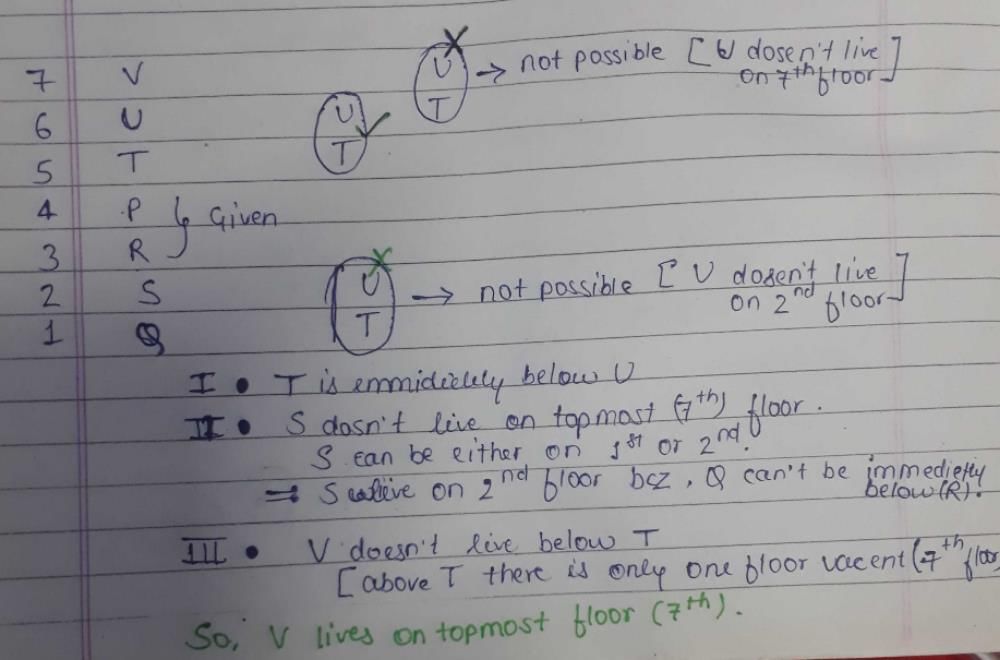 7 V U T → not possible [U dosen't live
on 7th floor]
6 U U
5 T T
4 P } Given
3 R
2 S U T → not possible [U dosen't live
on 2nd floor]
1 Q
I • T is emmidietely below U
II • S dosn't live on topmost (7th) floor.
S can be either on 1st or 2nd.
⇒ S live on 2nd floor bcz, Q can't be immedietly
below (R).
III • V doesn't live below T
[above T there is only one floor vacent (7th floor
So, V lives on topmost floor (7th).